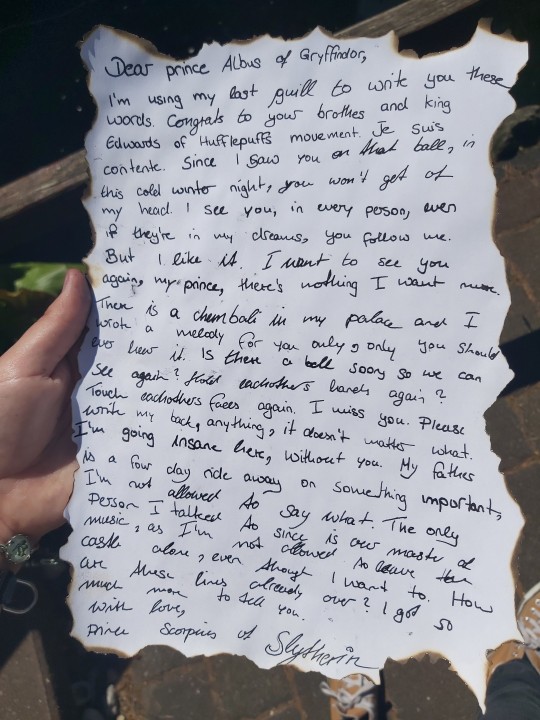 Dear prince Albus of Gryffindor,
I'm using my last quill to write you these
words. Congrats to your brothes and king
Edwards of Hufflepuffs movement. Je suis
contente. Since I saw you on that ball, in
this cold winter night, you won't get of
my head. I see you, in every person, even
if they're in my dreams, you follow me.
But I like it. I want to see you
again, my prince, there's nothing I want more.
There is a chembali in my palace and I
wrote a melody for you only, only you should
ever hear it. Is there a ball soon, so we can
see again? Hold eachothers hands again?
Touch eachothers faces again. I miss you. Please
write my back, anything, it doesn't matter what.
I'm going insane here, without you. My father
is a four day ride away on something important,
I'm not allowed to say what. The only
Person I talked to since is our master of
music, as I'm not allowed to leave the
castle alone, even though I want to. How
are these lines already over? I got so
much more to tell you.
With love,
prince Scorpius of Slytherin